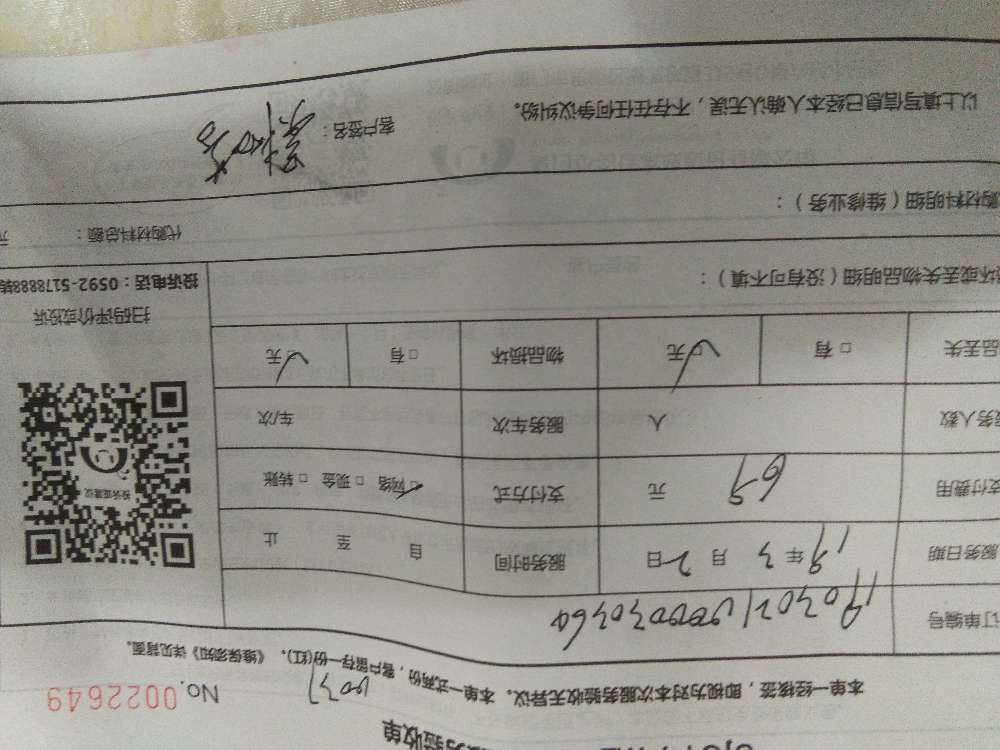 验收单
No. 0022649
本单一经核签，即视为对本次服务验收无异议。本单一式两份，客户留存一份(红)。《维保须知》详见背面。
订单编号
服务日期 19年3月2日 服务时间 自 至 止
支付费用 69 元 支付方式 网络 □现金 □转账
服务人数 人 服务车次 车/次
品丢失 □有 □无 物品损坏 □有 □无
投诉建议
扫码评价或投诉
投诉电话：0592-5178888转
坏或丢失物品明细（没有可不填）：
购材料明细（维修业务）：
代购材料总额： 元
以上填写信息已经本人确认无误，不存在任何争议纠纷。
客户签名：